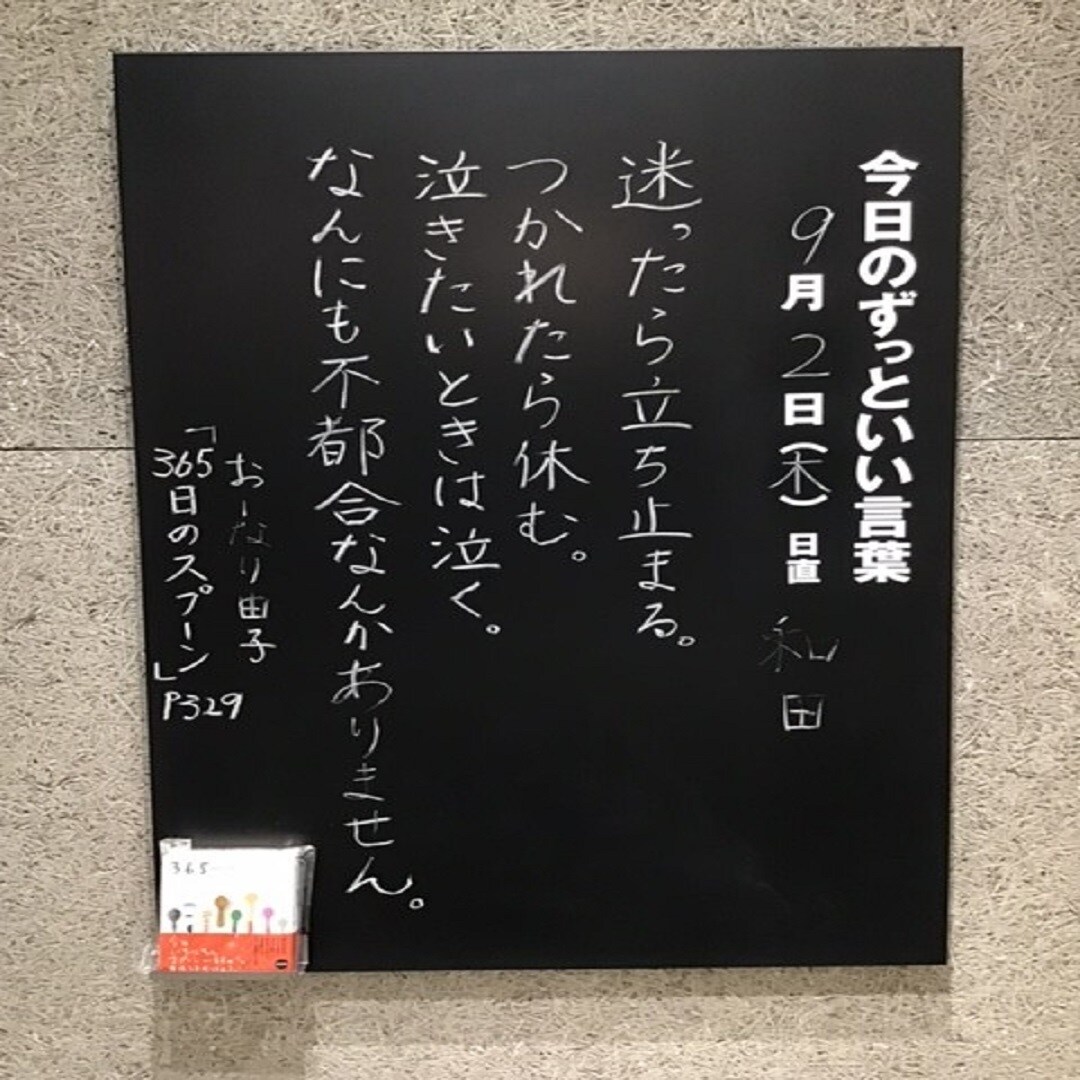 今日のずっといい言葉
9月2日(木)日直 和田
迷ったら立ち止まる。
つかれたら休む。
泣きたいときは泣く。
なんにも不都合なんかありません。
おーなり由子
「365日のスプーン」
P329
365